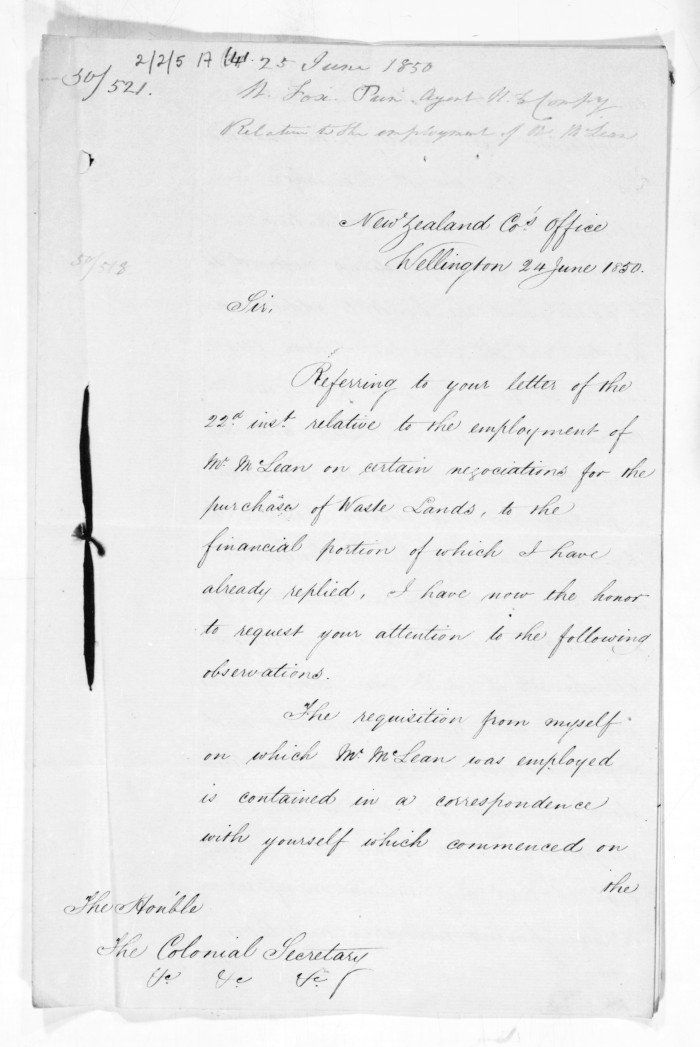 2/2/5 A 41. 25 June 1850
50/521.
W. Fox Prin. Agent N. Z Compy
Relative to the employment of Mr McLean
New Zealand Co.'s Office
Wellington 24 June 1850.
50/518
Sir,
Referring to your letter of the
22d inst. relative to the employment of
Mr. McLean on certain negociations for the
purchase of Waste Lands, to the
financial portion of which I have
already replied, I have now the honor
to request your attention to the following
observations.
The requisition from myself
on which Mr. McLean was employed
is contained in a correspondence
with yourself which commenced on
the
The Hon'ble
The Colonial Secretary
&c &c &c